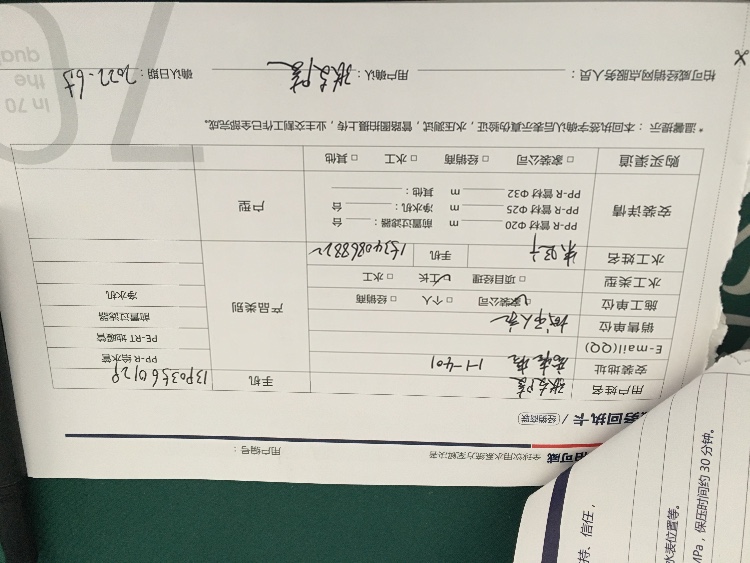 柏可威 全球饮用水系统方案解决者 用户编号：
服务回执卡 / 经销商联
用户姓名 手机 13903560129
安装地址 1-1-401 PP-R 给水管
E-mail(QQ) PE-RT 地暖管
销售单位 前置过滤器
施工单位 家装公司 □ 个人 □ 经销商 产品类别 净水机
水工类型 □ 项目经理 工长 □ 水工
水工姓名 手机 15340868822
安装详情 PP-R 管材 Φ20 m 前置过滤器： 台 户型
PP-R 管材 Φ25 m 净水机： 台
PP-R 管材 Φ32 m 其他：
购买渠道 □ 家装公司 □ 经销商 □ 水工 □ 其他
* 温馨提示：本回执签字确认后表示真伪验证，水压测试，管路图拍摄上传，业主交割工作已全部完成。
柏可威经销网点服务人员： 用户确认： 确认日期：2022-6.3
In 70
the
qual
70
持、信任，
水表位置等。
MPa，保压时间约 30 分钟。